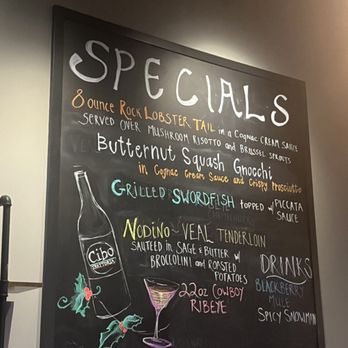 SPECIALS
8 ounce Rock Lobster Tail in a Cognac Cream Sauce
served over mushroom risotto and Brussel sprouts
Butternut Squash Gnocchi
in Cognac Cream Sauce and Crispy Prosciutto
Grilled Swordfish topped w/ Piccata
Sauce
Nodino ~ Veal Tenderloin
sauteed in sage & butter w/
broccolini and roasted
potatoes
22oz Cowboy
Ribeye
DRINKS
Blackberry
Mule
Spicy Snowman
Cibo
TRATTORIA